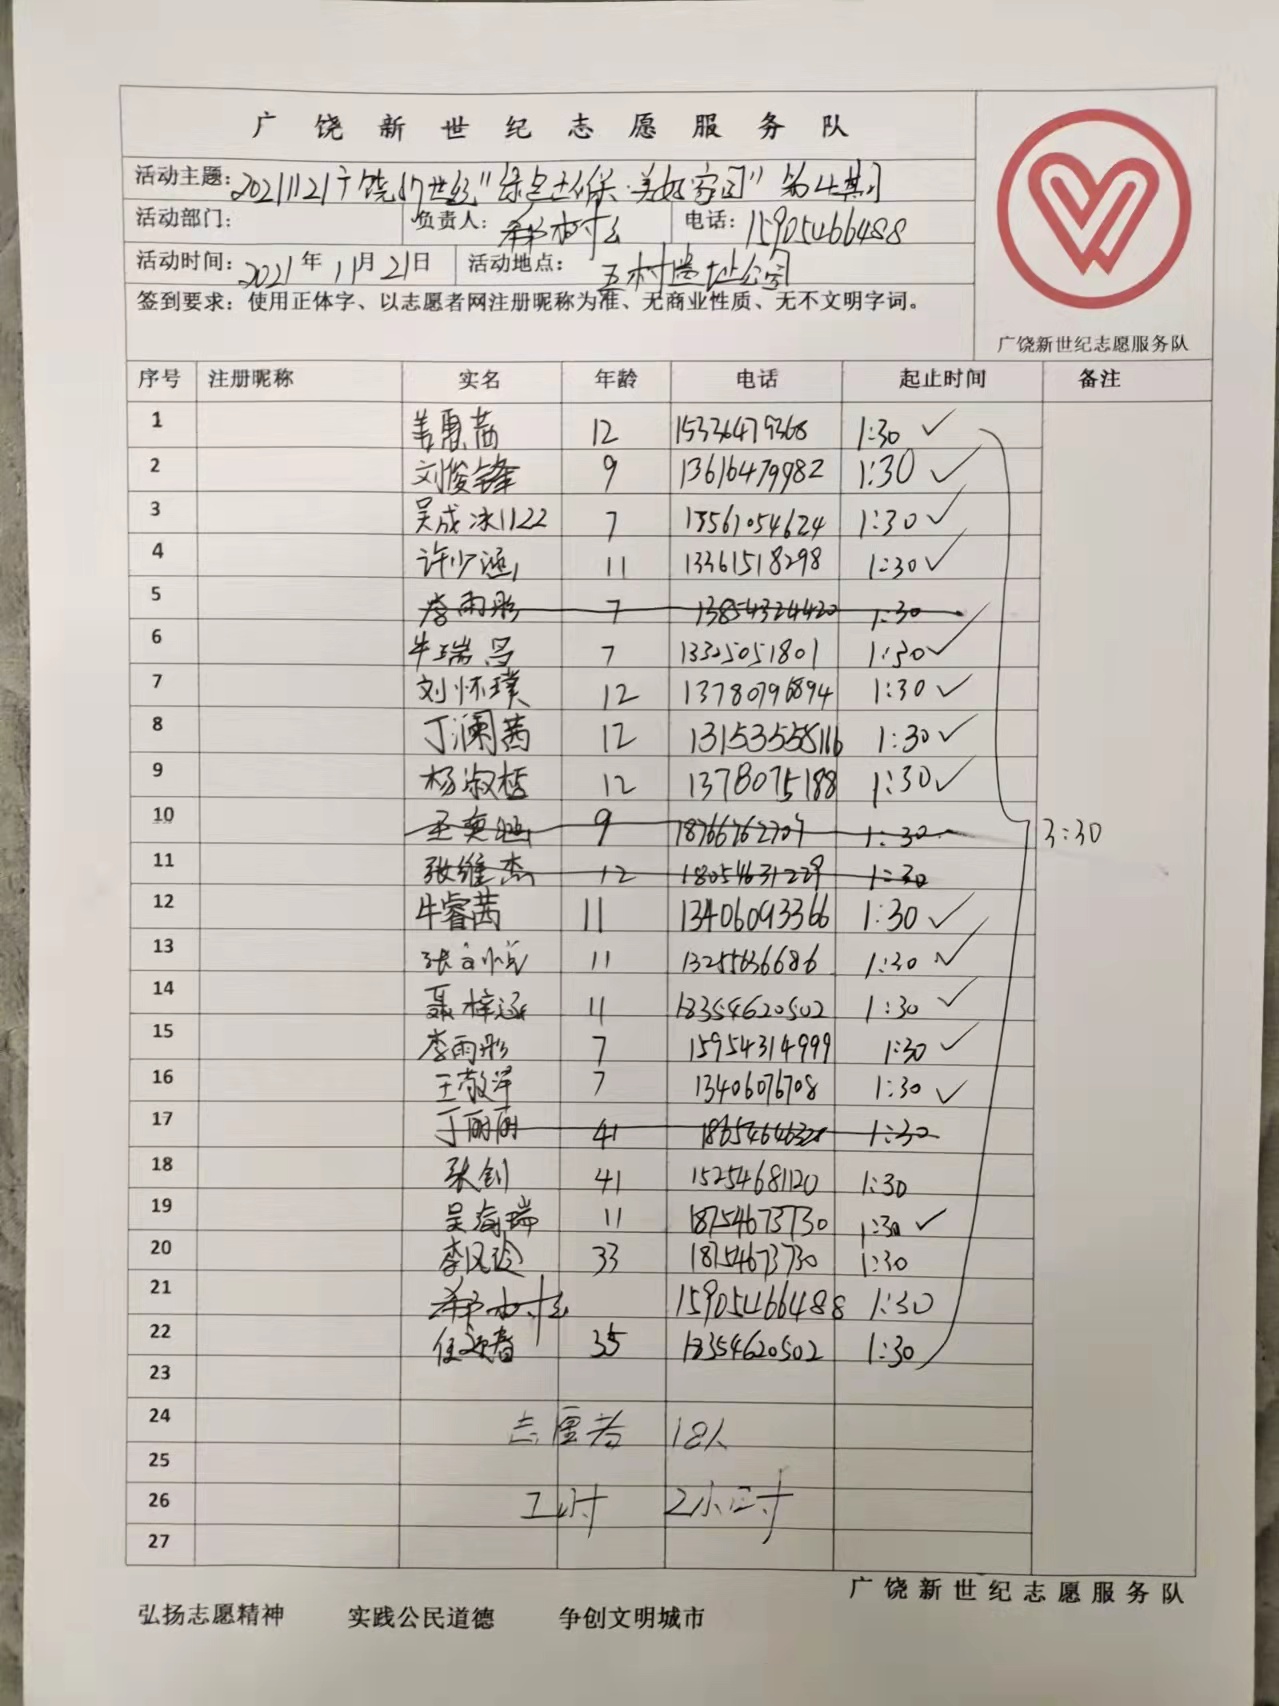 广饶新世纪志愿服务队
活动主题：20211121广饶新世纪"绿色环保·美好家园"第4期
活动部门： 负责人： 电话：15905466488
活动时间：2021年11月21日 活动地点：五村遗址公园
签到要求：使用正体字、以志愿者网注册昵称为准、无商业性质、无不文明字词。
广饶新世纪志愿服务队
序号 注册昵称 实名 年龄 电话 起止时间 备注
1 姜惠茜 12 15336479368 1:30 ✓
2 刘俊锋 9 13616479982 1:30 ✓
3 吴成冰1122 7 18561054624 1:30 ✓
4 许少涵 11 13361518298 1:30 ✓
5 李雨彤 7 13854324420 1:30
6 牛瑞昌 7 13325051801 1:30 ✓
7 刘怀璞 12 13780796894 1:30 ✓
8 丁澜茜 12 13153555116 1:30 ✓
9 杨淑恬 12 1378075188 1:30 ✓
10 9 18766762707 1:30 3:30
11 张维杰 12 18054631229 1:30
12 牛睿茜 11 13406093366 1:30 ✓
13 张 11 13255636686 1:30 ✓
14 聂梓涵 11 18354620502 1:30 ✓
15 李雨彤 7 15954314999 1:30 ✓
16 王敬泽 7 13406076708 1:30 ✓
17 丁丽丽 41 1:30
18 张钊 41 15254681120 1:30
19 吴海瑞 11 18754673730 1:30 ✓
20 李风玲 33 18754673730 1:30
21 15905466488 1:30
22 任 35 18354620502 1:30
23
24 志愿者 18人
25
26 工时 2小时
27
广饶新世纪志愿服务队
弘扬志愿精神 实践公民道德 争创文明城市